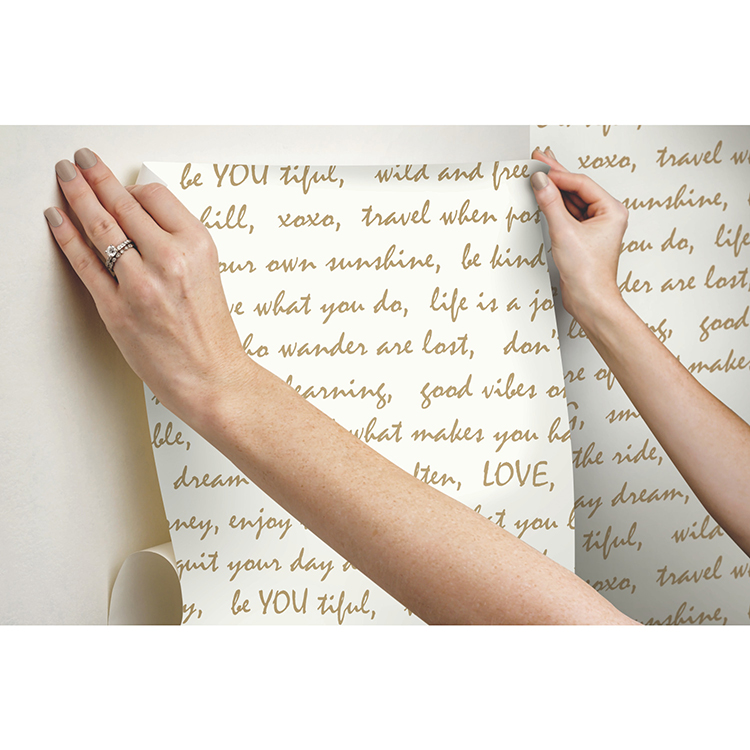 be YOU tiful, wild and free
hill, xoxo, travel when pos
our own sunshine, be kind
ve what you do, life is a jo
ho wander are lost, don't
learning, good vibes on
what makes you ha
ble,
dream ften, LOVE,
ney, enjoy t you l
quit your day d
y, be YOU tiful,
xoxo, travel w
sunshine,
ou do, life
der are lost,
ng, good
re of makes
sm
the ride,
ay dream,
tiful, wild
xoxo, travel w
unshine,